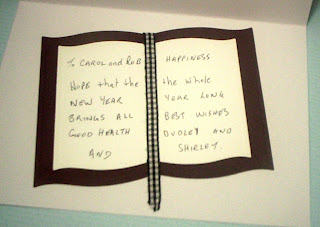 To CAROL and ROB
HOPE that the
NEW YEAR
BRINGS ALL
GOOD HEALTH
AND
HAPPINESS
the whole
YEAR LONG
BEST WISHES
DUDLEY AND
SHIRLEY.